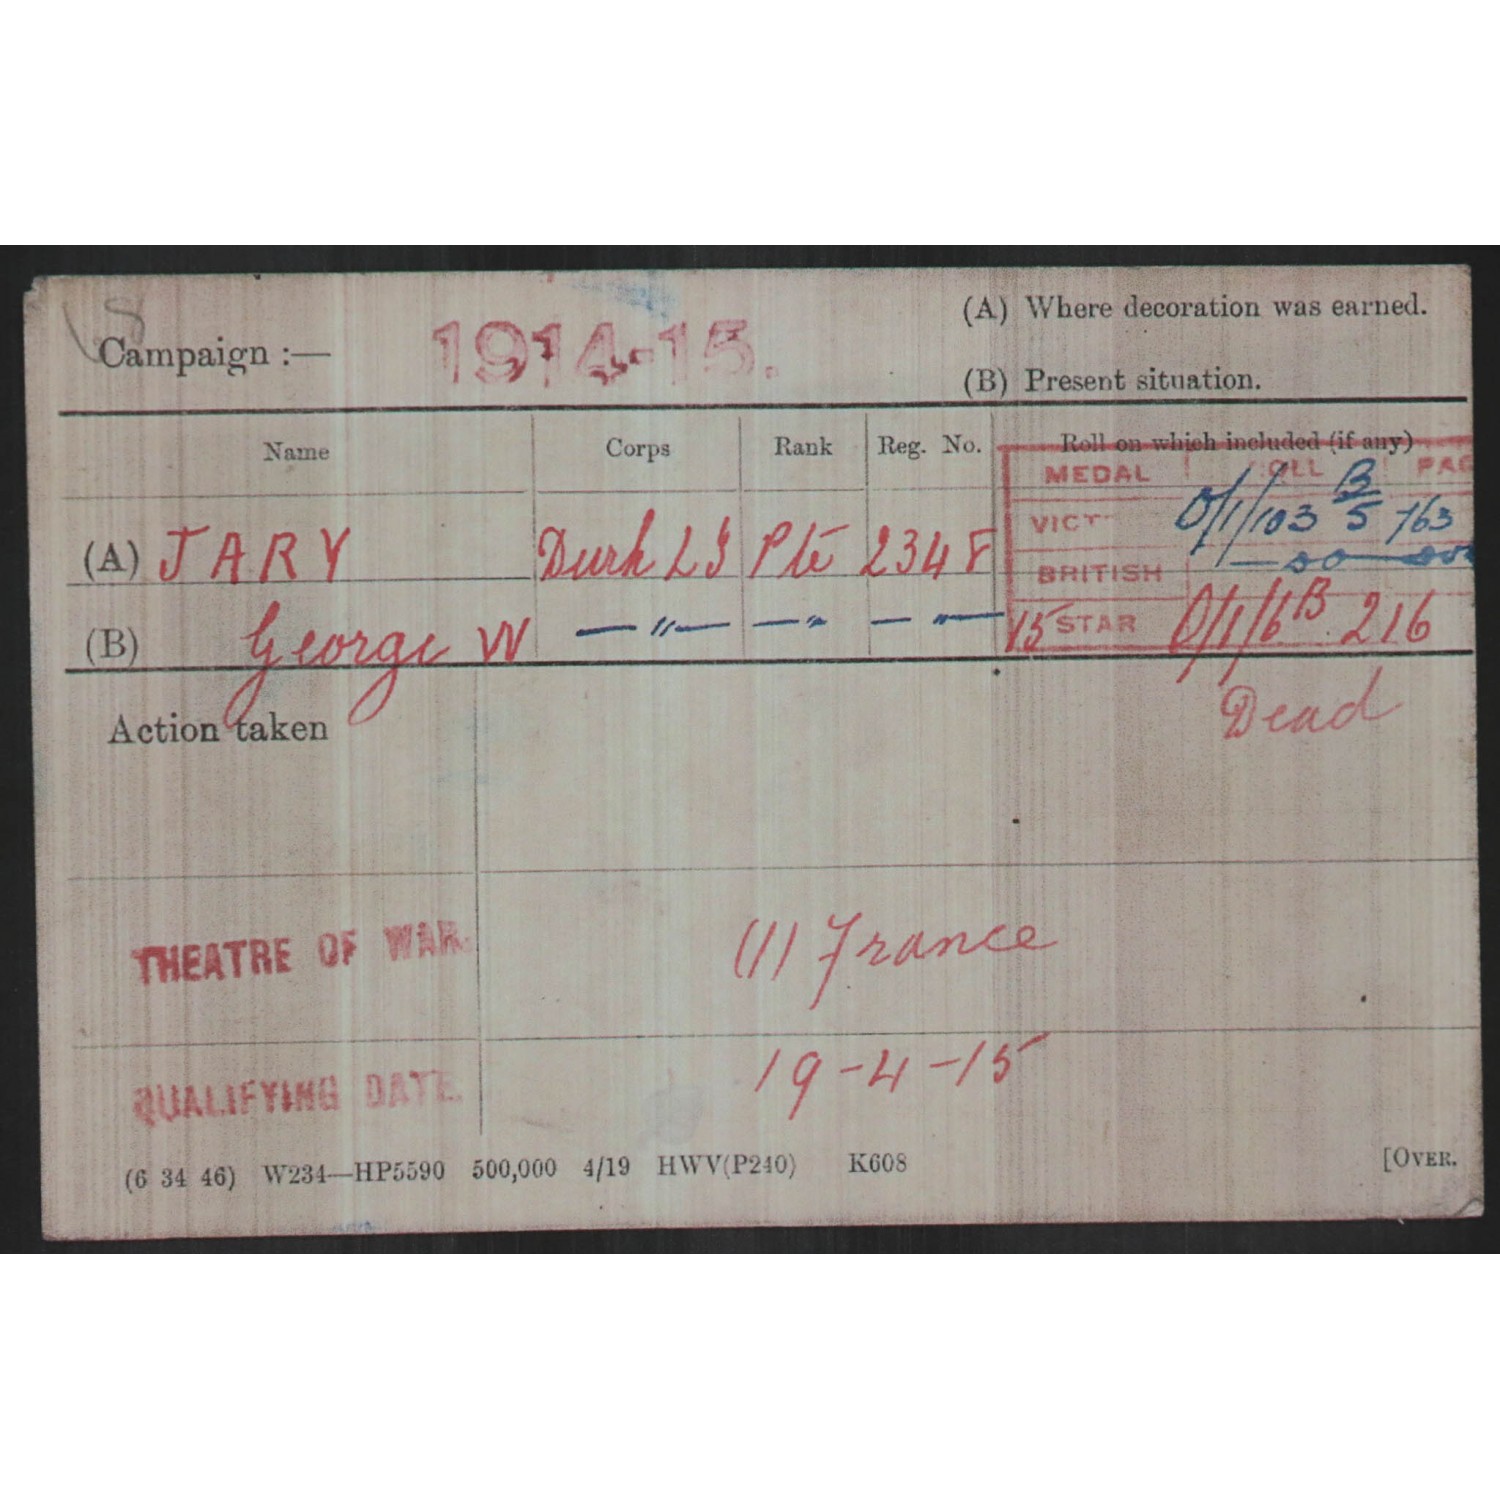 68
Campaign :— 1914-15.
(A) Where decoration was earned.
(B) Present situation.
Name Corps Rank Reg. No. Roll on which included (if any)
MEDAL ROLL PAG
(A) JARY Durh LI Pte 2348 VICT O/1/103 B/5 763
BRITISH — do — do
(B) George W — " — — " — " — 15 STAR O/1/6B 216
Action taken Dead
THEATRE OF WAR. (1) France
QUALIFYING DATE. 19-4-15
(6 34 46) W234—HP5590 500,000 4/19 HWV(P240) K608 [OVER.